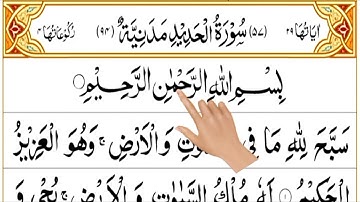 اٰیَاتُهَا ٢٩ (٥٧) سُوْرَةُ الْحَدِیْدِ مَدَنِیَّةٌ (٩٤) رُكُوْعَاتُهَا ٤
بِسْمِ اللّٰهِ الرَّحْمٰنِ الرَّحِیْمِ
سَبَّحَ لِلّٰهِ مَا فِی وَالْاَرْضِ ۚ وَهُوَ الْعَزِیْزُ
الْحَكِیْمُ ۝ لَهٗ مُلْكُ السَّمٰوٰتِ وَالْاَرْضِ ۚ یُحْیٖ وَ